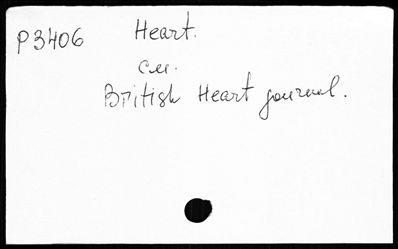 P3406 Heart.
см.
British Heart journal.